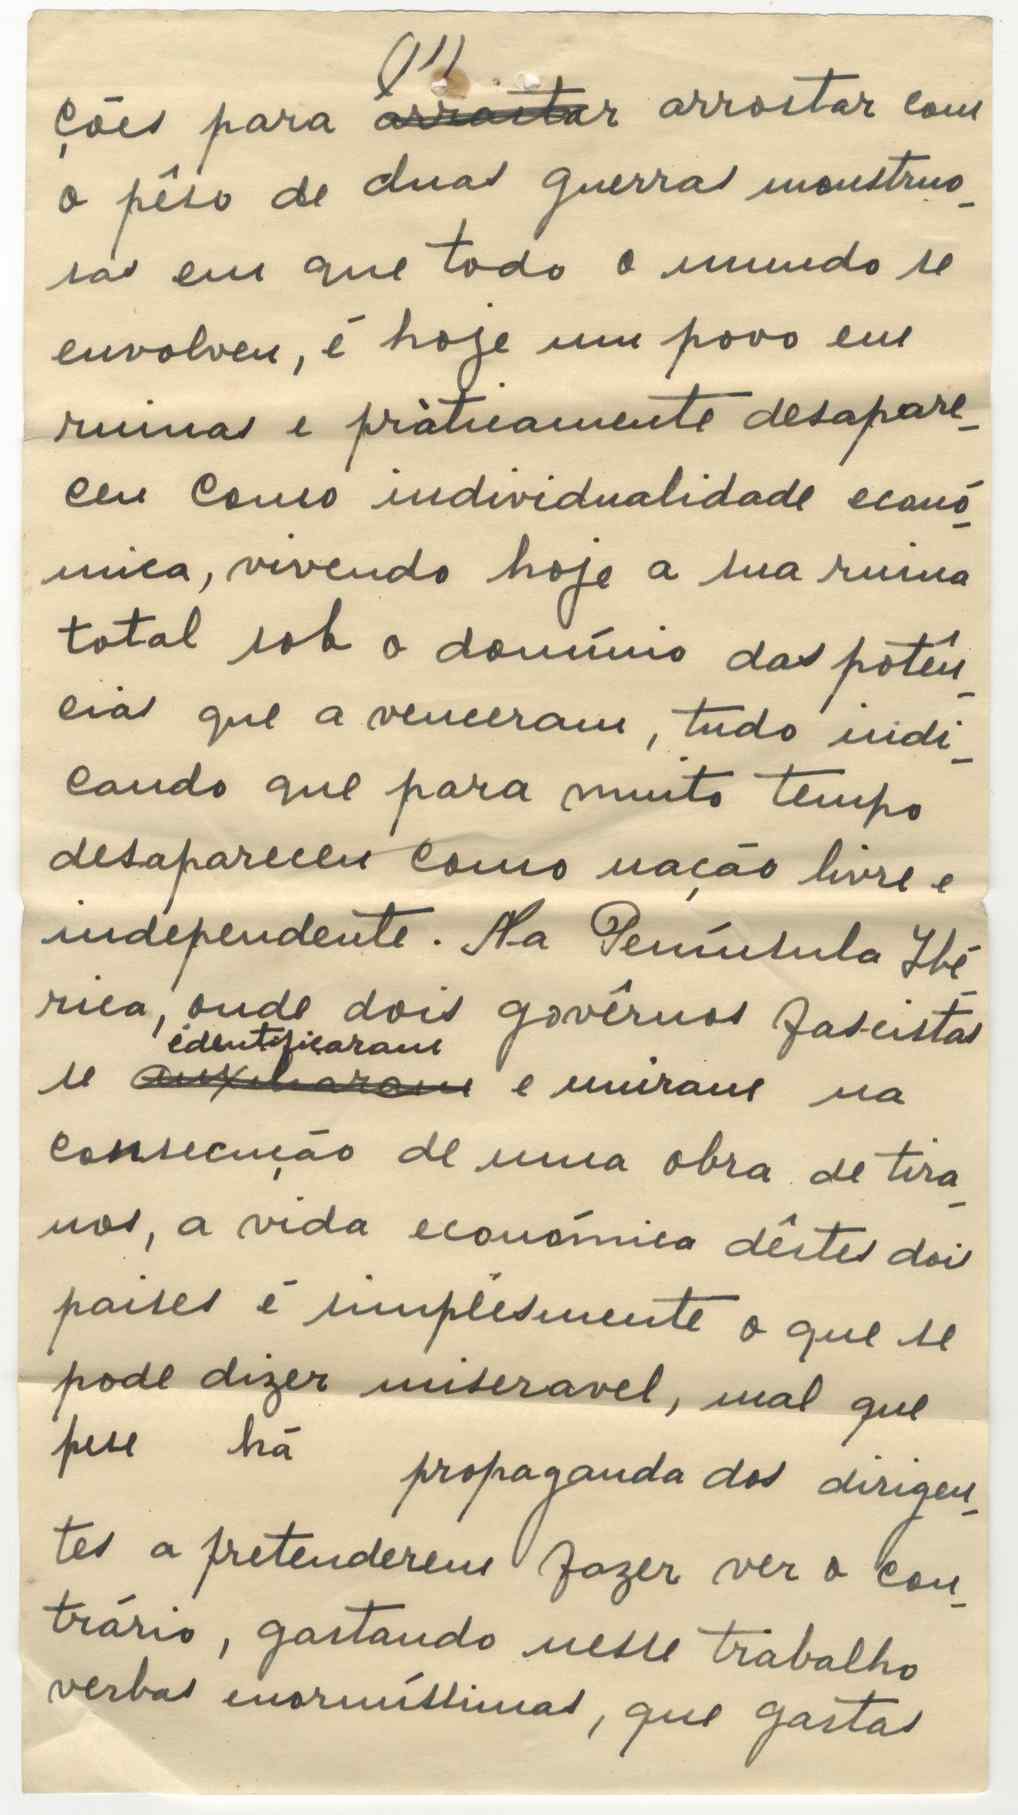 ções para arrastar arrostar com
o pêso de duas guerras monstruo-
sas em que todo o mundo se
envolveu, é hoje um povo em
ruinas e pràticamente desapare-
ceu como individualidade econó-
mica, vivendo hoje a sua ruina
total sob o domínio das potên-
cias que a venceram, tudo indi-
cando que para muito tempo
desapareceu como nação livre e
independente. Na Península Ibé-
rica, onde dois govêrnos fascistas
identificaram
se auxiliaram e uniram na
consecução de uma obra de tira-
nos, a vida económica dêstes dois
paises é simplésmente o que se
pode dizer miseravel, mal que
pese há propaganda dos dirigen-
tes a pretenderem fazer ver o con-
trário, gastando nesse trabalho
verbas enormíssimas, que gastas